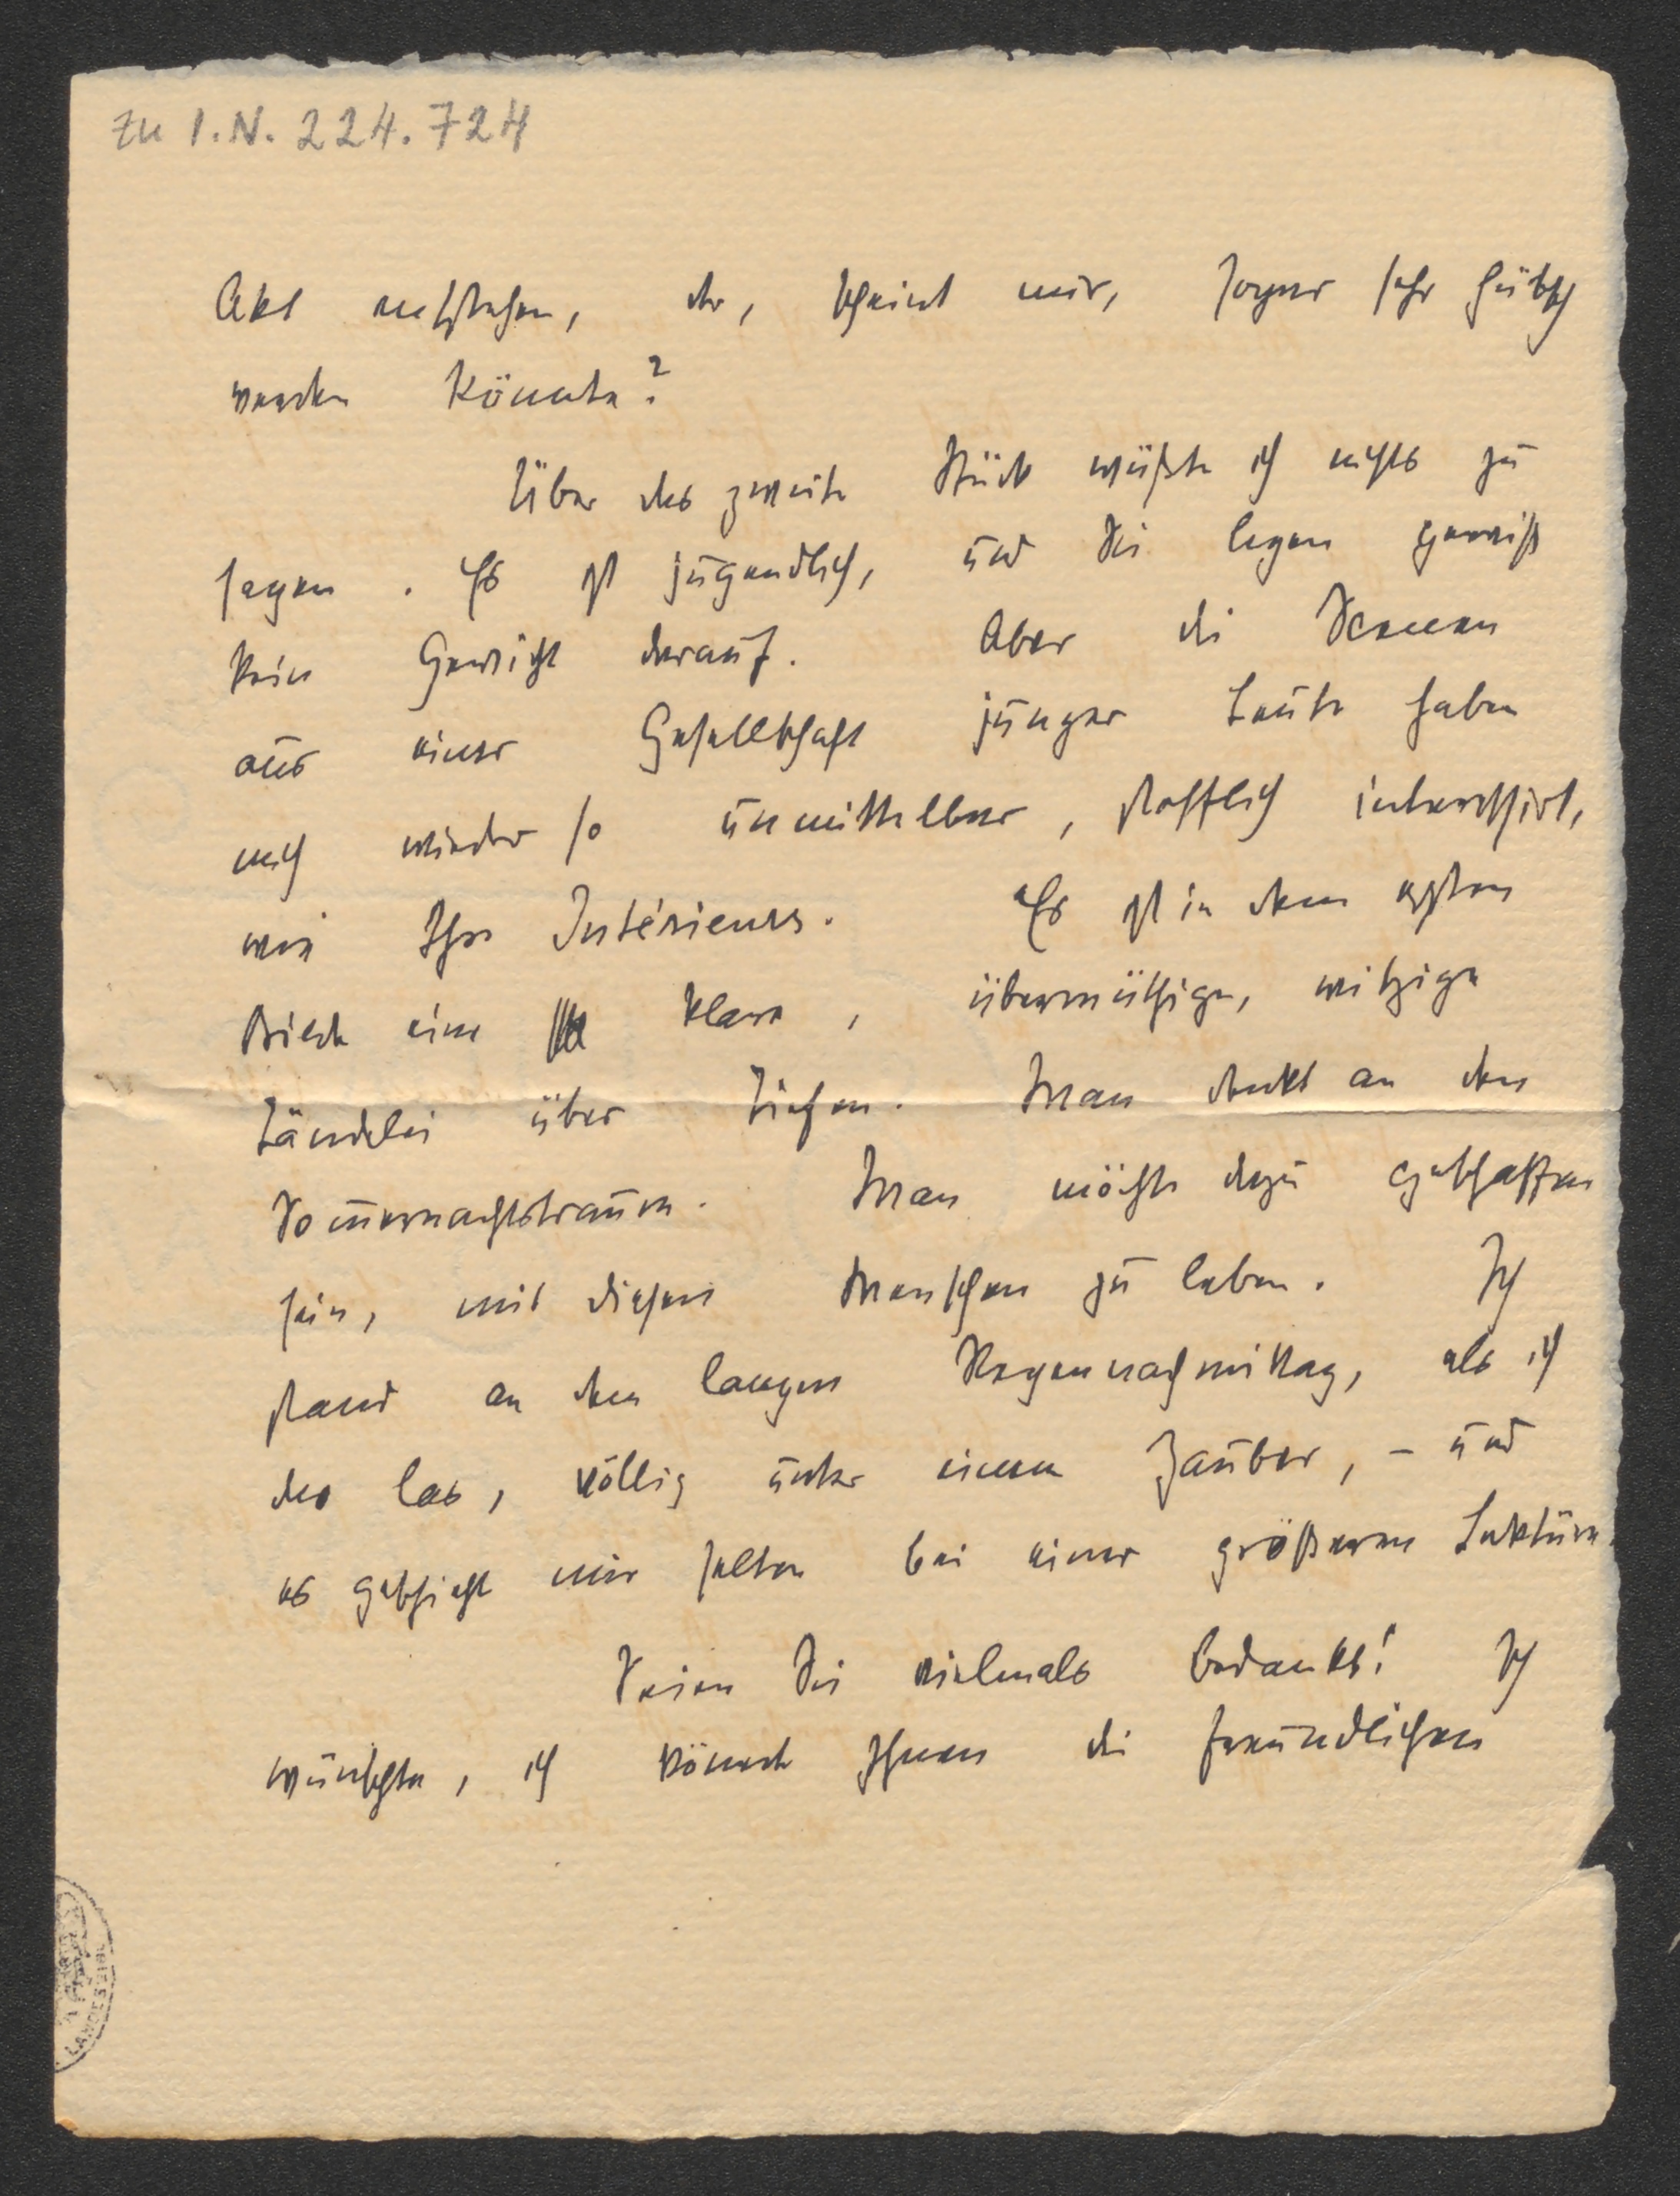 zu I.N. 224.724
Akt entstehen, der, scheint mir, sogar sehr hübsch
werden könnte?
Über das zweite Stück wüßte ich nichts zu
sagen. Es ist jugendlich, und Sie legen gewiß
kein Gewicht darauf. Aber die Scenen
aus einer Gesellschaft junger Leute haben
mich wieder so unmittelbar, stofflich interessirt,
wie Ihre Intérieurs. Es ist in dem ersten
Stück eine klare, übermüthige, witzige
Tändelei über Tiefen. Man denkt an den
Som̄ernachtstraum. Man möchte dazu geschaffen
sein, mit diesen Menschen zu leben. Ich
stand an dem langen Regennachmittag, als ich
das las, völlig unter einem Zauber, – und
es geschieht mir selten bei einer größeren Lektüre.
Seien Sie vielmals bedankt! Ich
wünschte, ich könnte Ihnen die freundlichen
LANDESBIBL